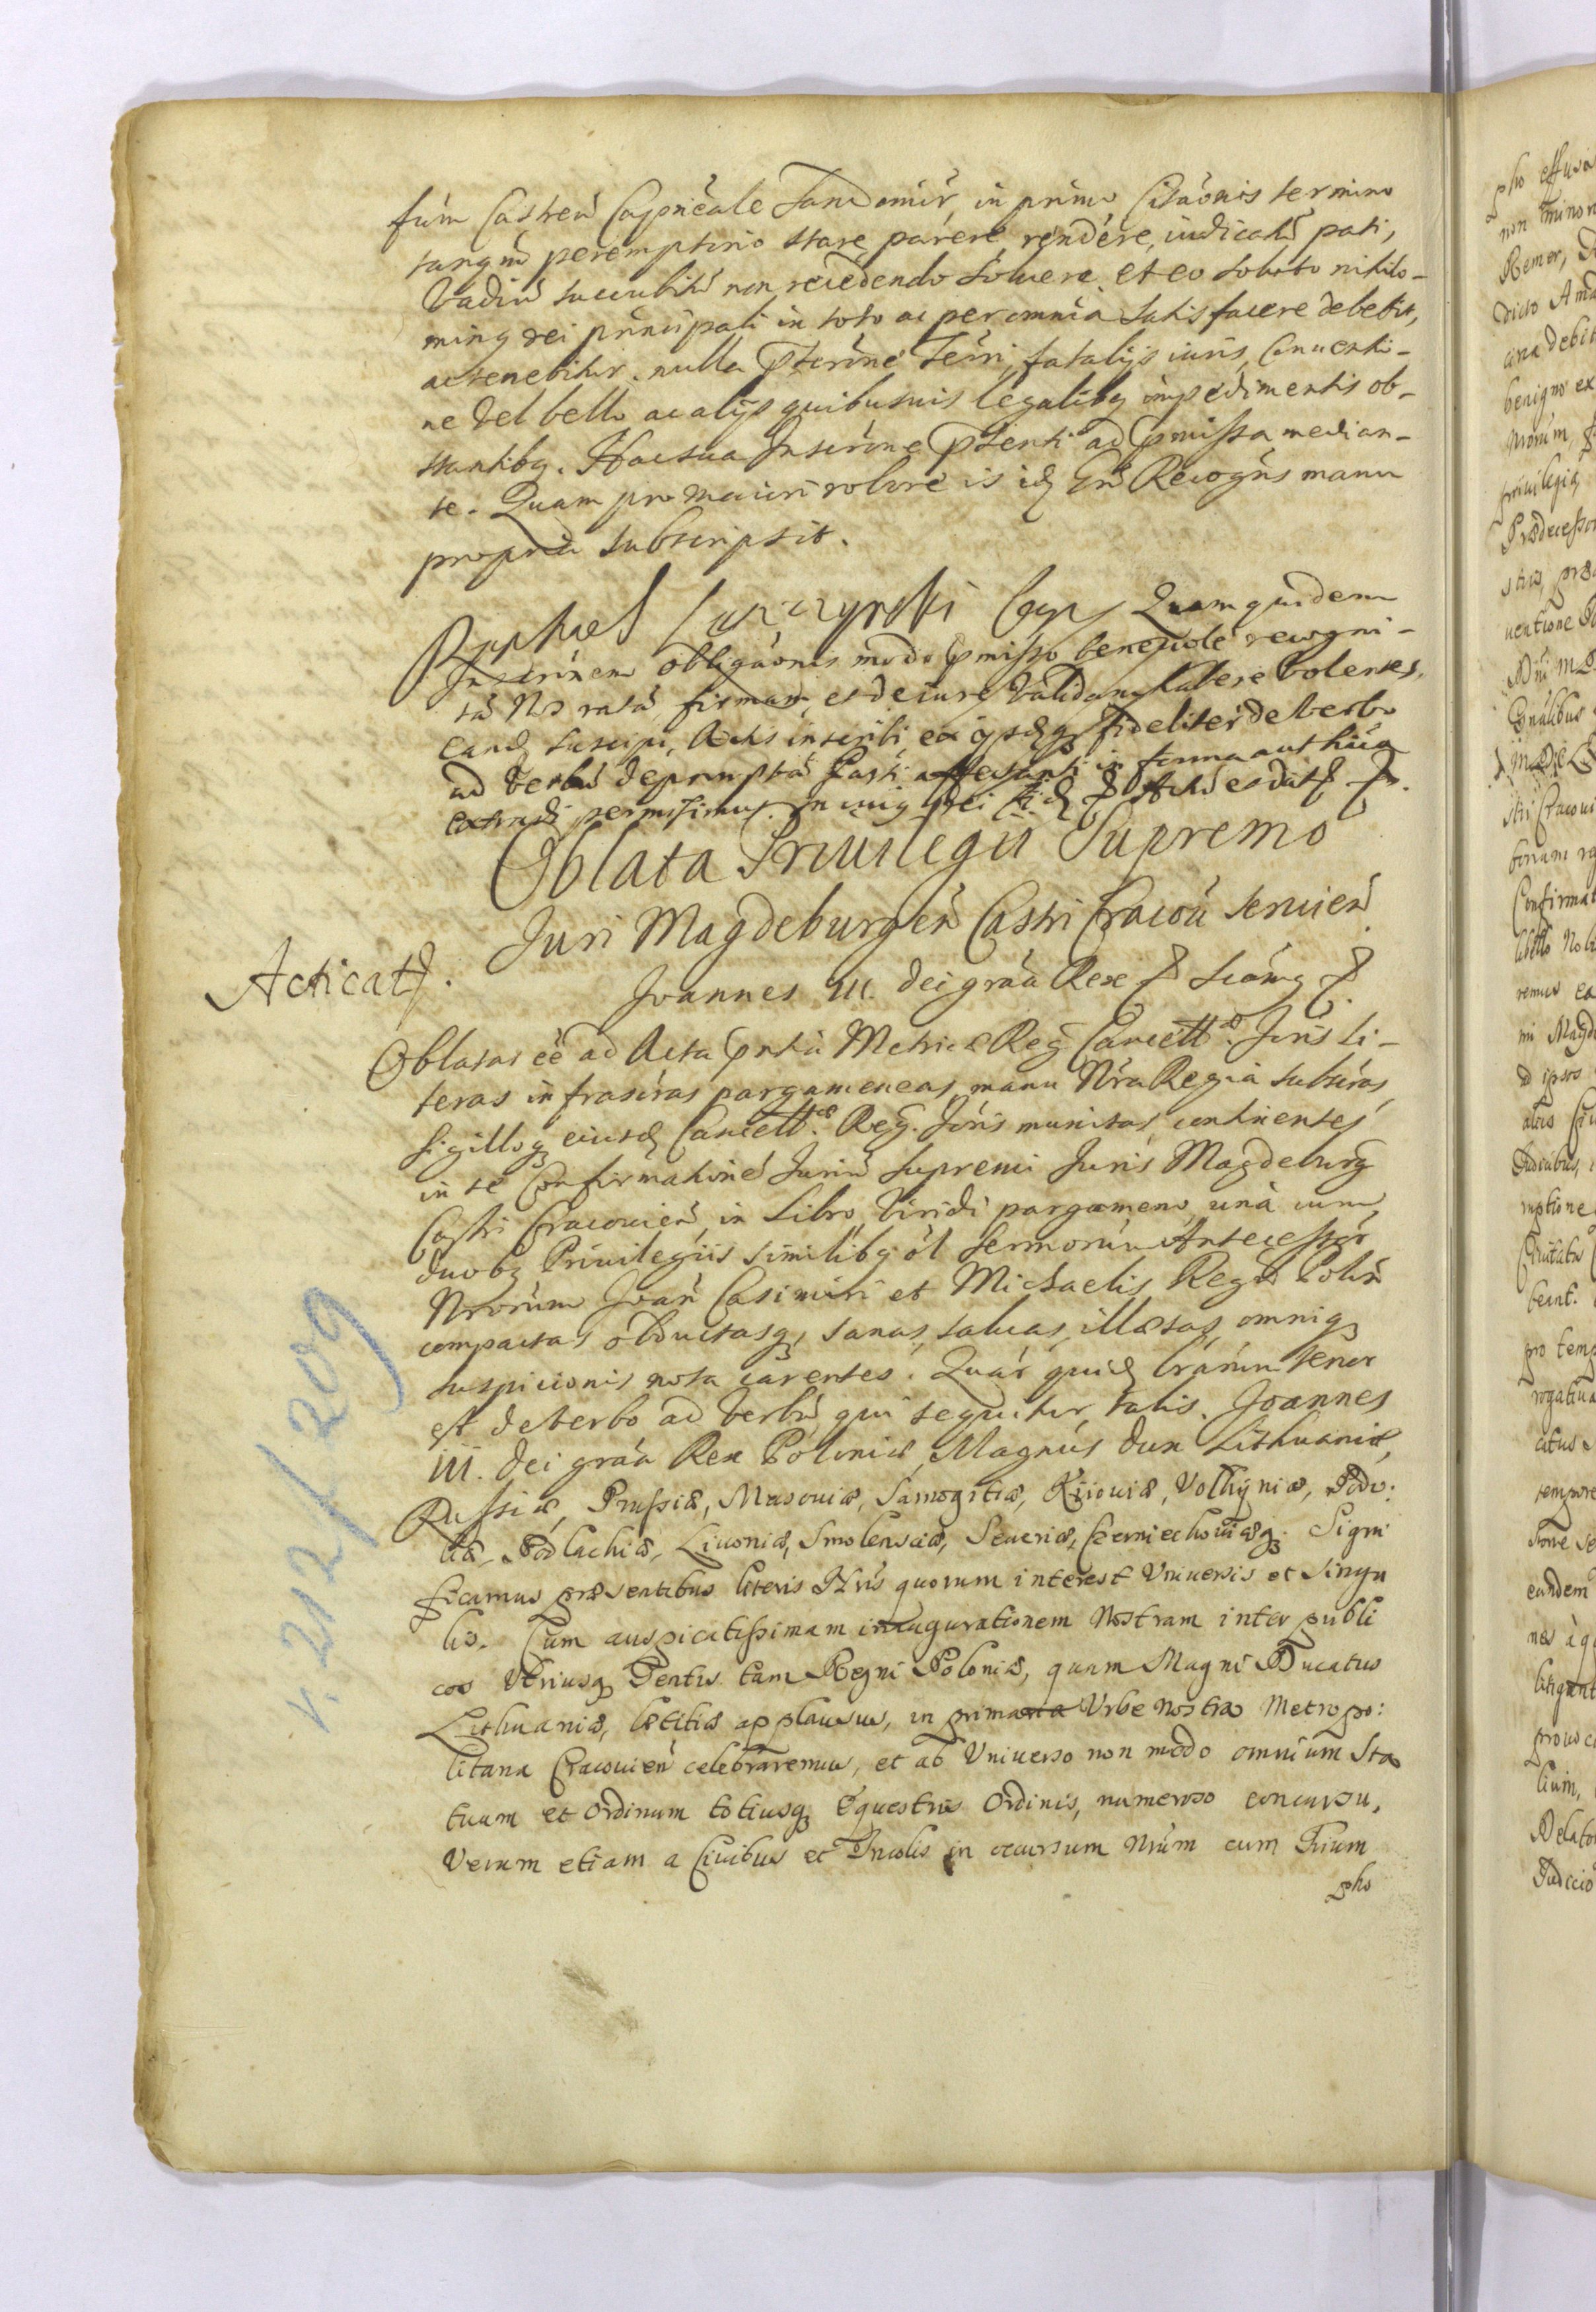 fúm Castreń Capnẽale Sandomir̃, in primo Citãonis termino
tanqm̃ peremptorio stare, parere, rendere, iudicatũ pati,
Vadiũ succubitũ non recedendo soluere, et eo soluto nihilo-
minq rei principali in toto ac per omnia satisfacere debebit,
ac tenebitur, nulla Pscrõne Terri, fatalijs iuris, Conuenti-
ne Vel bello ac alijs quibusuis legalibq impedimentis ob-
stantibq. Hac sua Inscrõne Psenti ad pmissa median-
te. Quam pro maiori robore is idq Gñs Recogñs manu
propria subscripsit.
Raphael Łuszczynski Cap Quam quidem
Inscrõnem obligãonis modo pmisso beneuole recogni-
tã Nos ratã, firmam, et de iure Validam habere Volentes,
eandq suscipi, Actis inscribi, ex ijsdqq fideliter de verbo
ad Verbũ depromptã Parti affectanti in forma authẽca
extradi permisimus. In cuiq rei fidq P Actũ et datq P.
Oblata Priuilegii Supremo
Juri Magdeburgeñ Castri Cracoũ seruieñ
Acticatq.
Joannes III. Dei grãa Rex P Sicãmq P.
Oblatas ẽe ad Acta pntia Metricæ Reg. Cancellæ. Nris li-
teras infrascras pargameneas, manu Nra Regia subscras,
sigilloq eiusdq Cancellæ. Reg. Nris munitas, continentes
in se Confirmationẽ Juriũ Supremi Juris Magdeburg
Castri Cracouieñ, in Libro Viridi pargameno, unà cum
duobq Priuilegiis similibq ol Sermorũm Antecessor̃
Nrrorũm Joañ Casimiri et Michaelis Regũ Poloñ
compactas obductasq, sanas, saluas, illæsas, omniq
suspicionis nota carentes. Quar̃ quidq lrarũm tenor
est de Verbo ad Verbũ, qui sequitur, talis. Joannes
III. Dei grãa Rex Poloniæ, Magnús Dux Lithuaniæ,
Russiæ, Prussiæ, Masouiæ, Samogitiæ, Kijouiæ, Volhÿniæ, Podo:
liæ, Podlachiæ, Liuoniæ, Smolensciæ, Seueriæ, Czerniechouiæq. Signi
ficamus præsentibus literis Nris quorum interest Vniuersis et Singu
lis. Cum auspicatissimam inaugurationem Nostram inter publi
cos Vtriusq Gentis tam Regni Poloniæ, quam Magni Ducatus
Lithuaniæ, lætitiæ applausus, in primaria Vrbe Nostra Metropo:
litana Cracouieñ celebraremus, et ab Vniuerso non modo omnium Sta
tuum et Ordinum totiusq Equestris Ordinis, numeroso concursu,
Verum etiam a Ciuibus et Incolis in occursum Nrum cum Trium
pho
v. 212/209